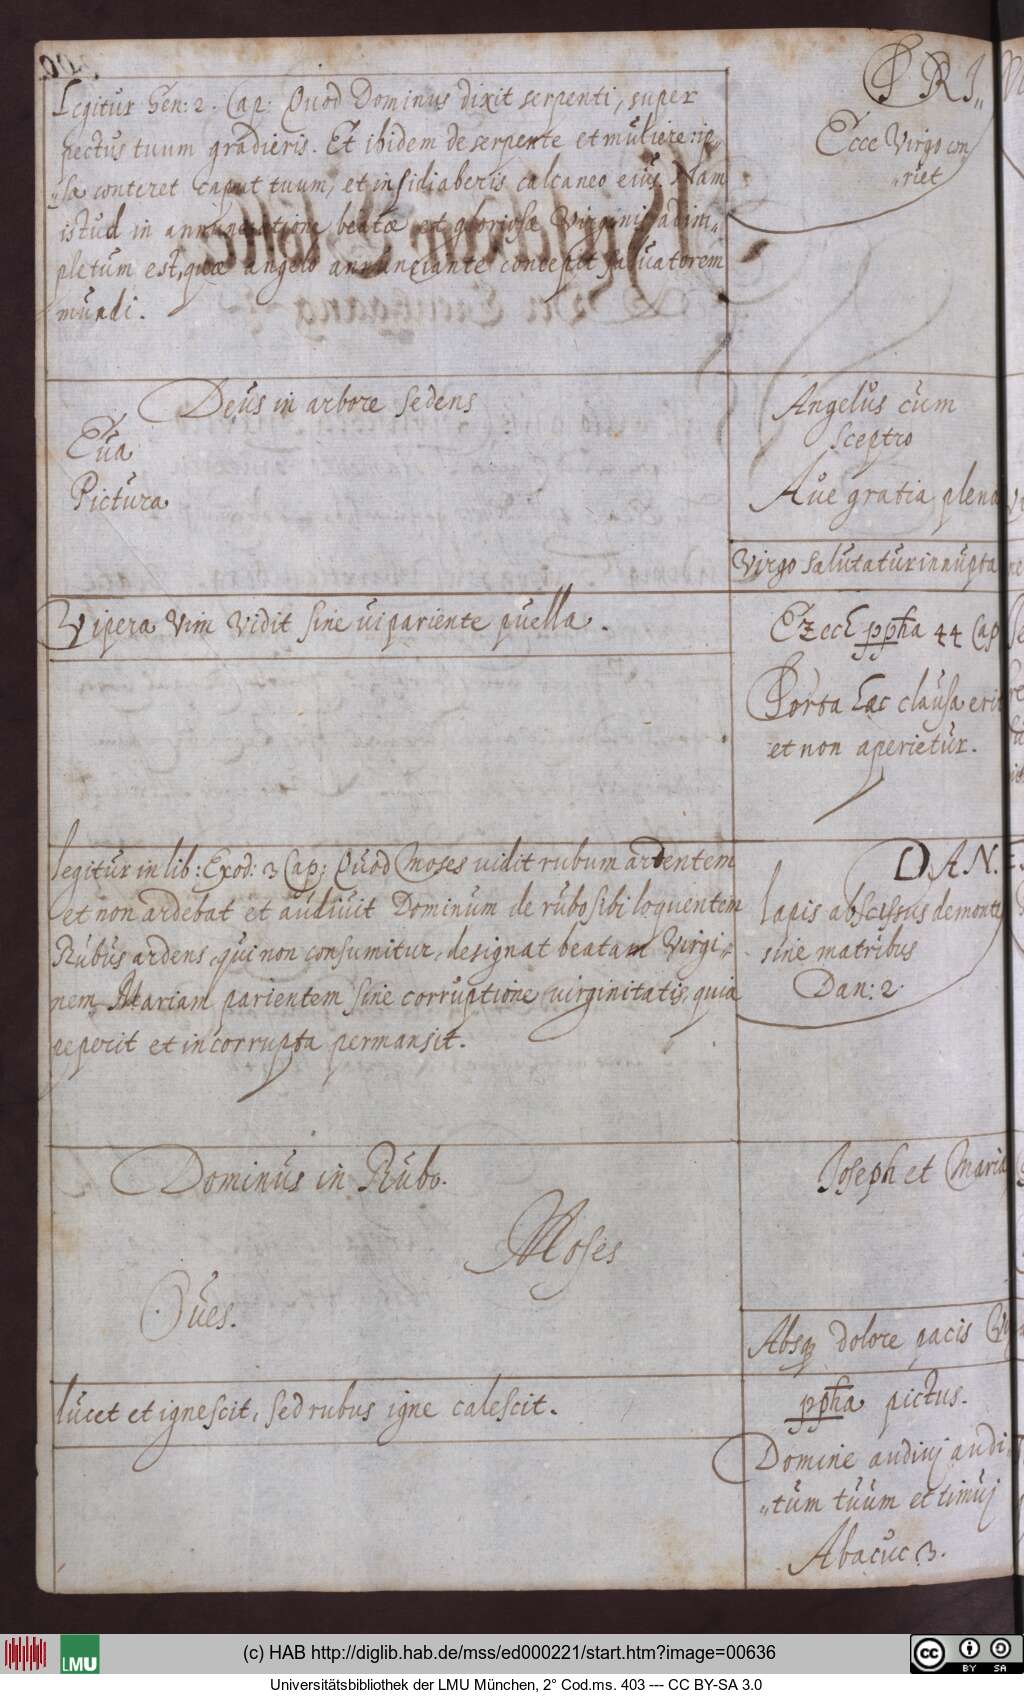 Legitur Gen: 2. Cap: Quod Dominus dixit serpenti, super
pectus tuum gradieris. Et ibidem de serpente et muliere: ip„
„sa conteret caput tuum, et insidiaberis calcaneo eius. Nam
istud in annunciatione beatæ et gloriosæ Virginis adim„
pletum est, quæ angelo annunciante concepit saluatorem
mundi.
PRI„
Ecce Virgo con
„riet
Deus in arbore sedens
Eua
Pictura
Angelus cum
sceptro
Aue gratia plena
Virgo salutatur innupta
Vipera Vim Vidit sine ui pariente puella.
Ezech ppha 44 Cap
Porta hac clausa erit
et non aperietur.
legitur in lib: Exod: 3 Cap: Quod Moses uidit rubum ardentem
et non ardebat et audiuit Dominum de rubo sibi loquentem
Rubus ardens, qui non consumitur, designat beatam Virgi„
nem Mariam parientem sine corruptione uirginitatis, quia
peperit et incorrupta permansit.
DAN.
lapis abscissus de monte
sine matribus
Dan: 2.
Dominus in Rubo.
Moses
Oues.
Joseph et Maria
Absq dolore pacis
lucet et ignescit, sed rubus igne calescit.
ppha pictus.
Domine audiuj audi
„tum tuum et timuj
Abacuc 3.
(c) HAB http://diglib.hab.de/mss/ed000221/start.htm?image=00636
LMU
BY SA
Universitätsbibliothek der LMU München, 2° Cod.ms. 403 --- CC BY-SA 3.0